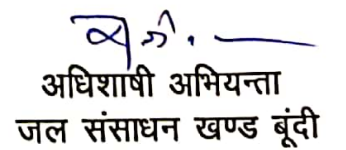 अधिशाषी अभियन्ता
जल संसाधन खण्ड बूंदी